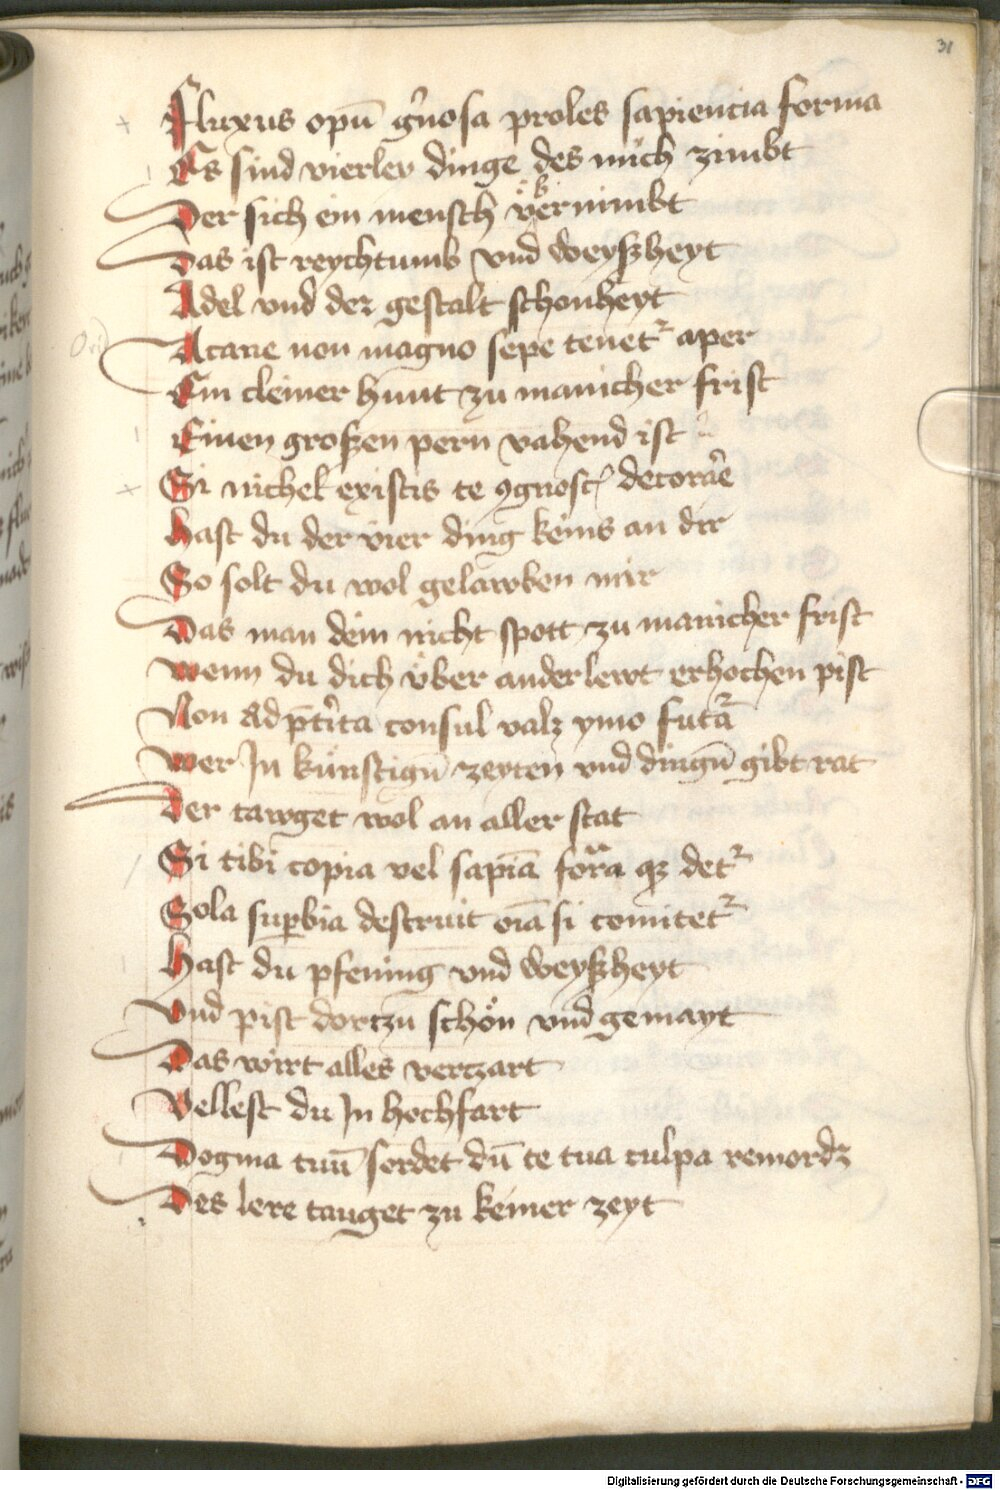 31
Fluxus opū gn̄osa proles sapiencia forma
Es sind vierley dinge des mich zimbt
Der sich ein mensch vbernimbt
Das ist reychtumb vnd weyßheyt
Adel vnd der gestalt schonheyt
A cane non magno sepe tenetᷣ aper
Ein cleiner hunt zu manicher frist
Einen großen pern vahend ist
Si nichel existis te ꝯgnosc decorare
hast du der vier ding keins an dir
So solt du wol gelawben mir
Das man dein nicht spott zu manicher frist
wenn du dich vber anderlewt erhochen pist
Non ad pͥtita consul valz ymo futā
wer In kunftigū zeyten vnd dingū gibt rat
Der tawget wol an aller stat
Si tibi copia vel sapiā forͣa qꝫ detᷣ
Sola suꝑbia destruit oīa si comitetᷣ
Hast du pfening vnd weyßheyt
Vnd pist dortzu schön vnd gemayt
Das wirt alles vertzart
Vellest du In hochfart
Dogma tuū sordet dū te tua culpa remordz
Des lere tauget zu keiner zeyt
Digitalisierung gefördert durch die Deutsche Forschungsgemeinschaft - DFG